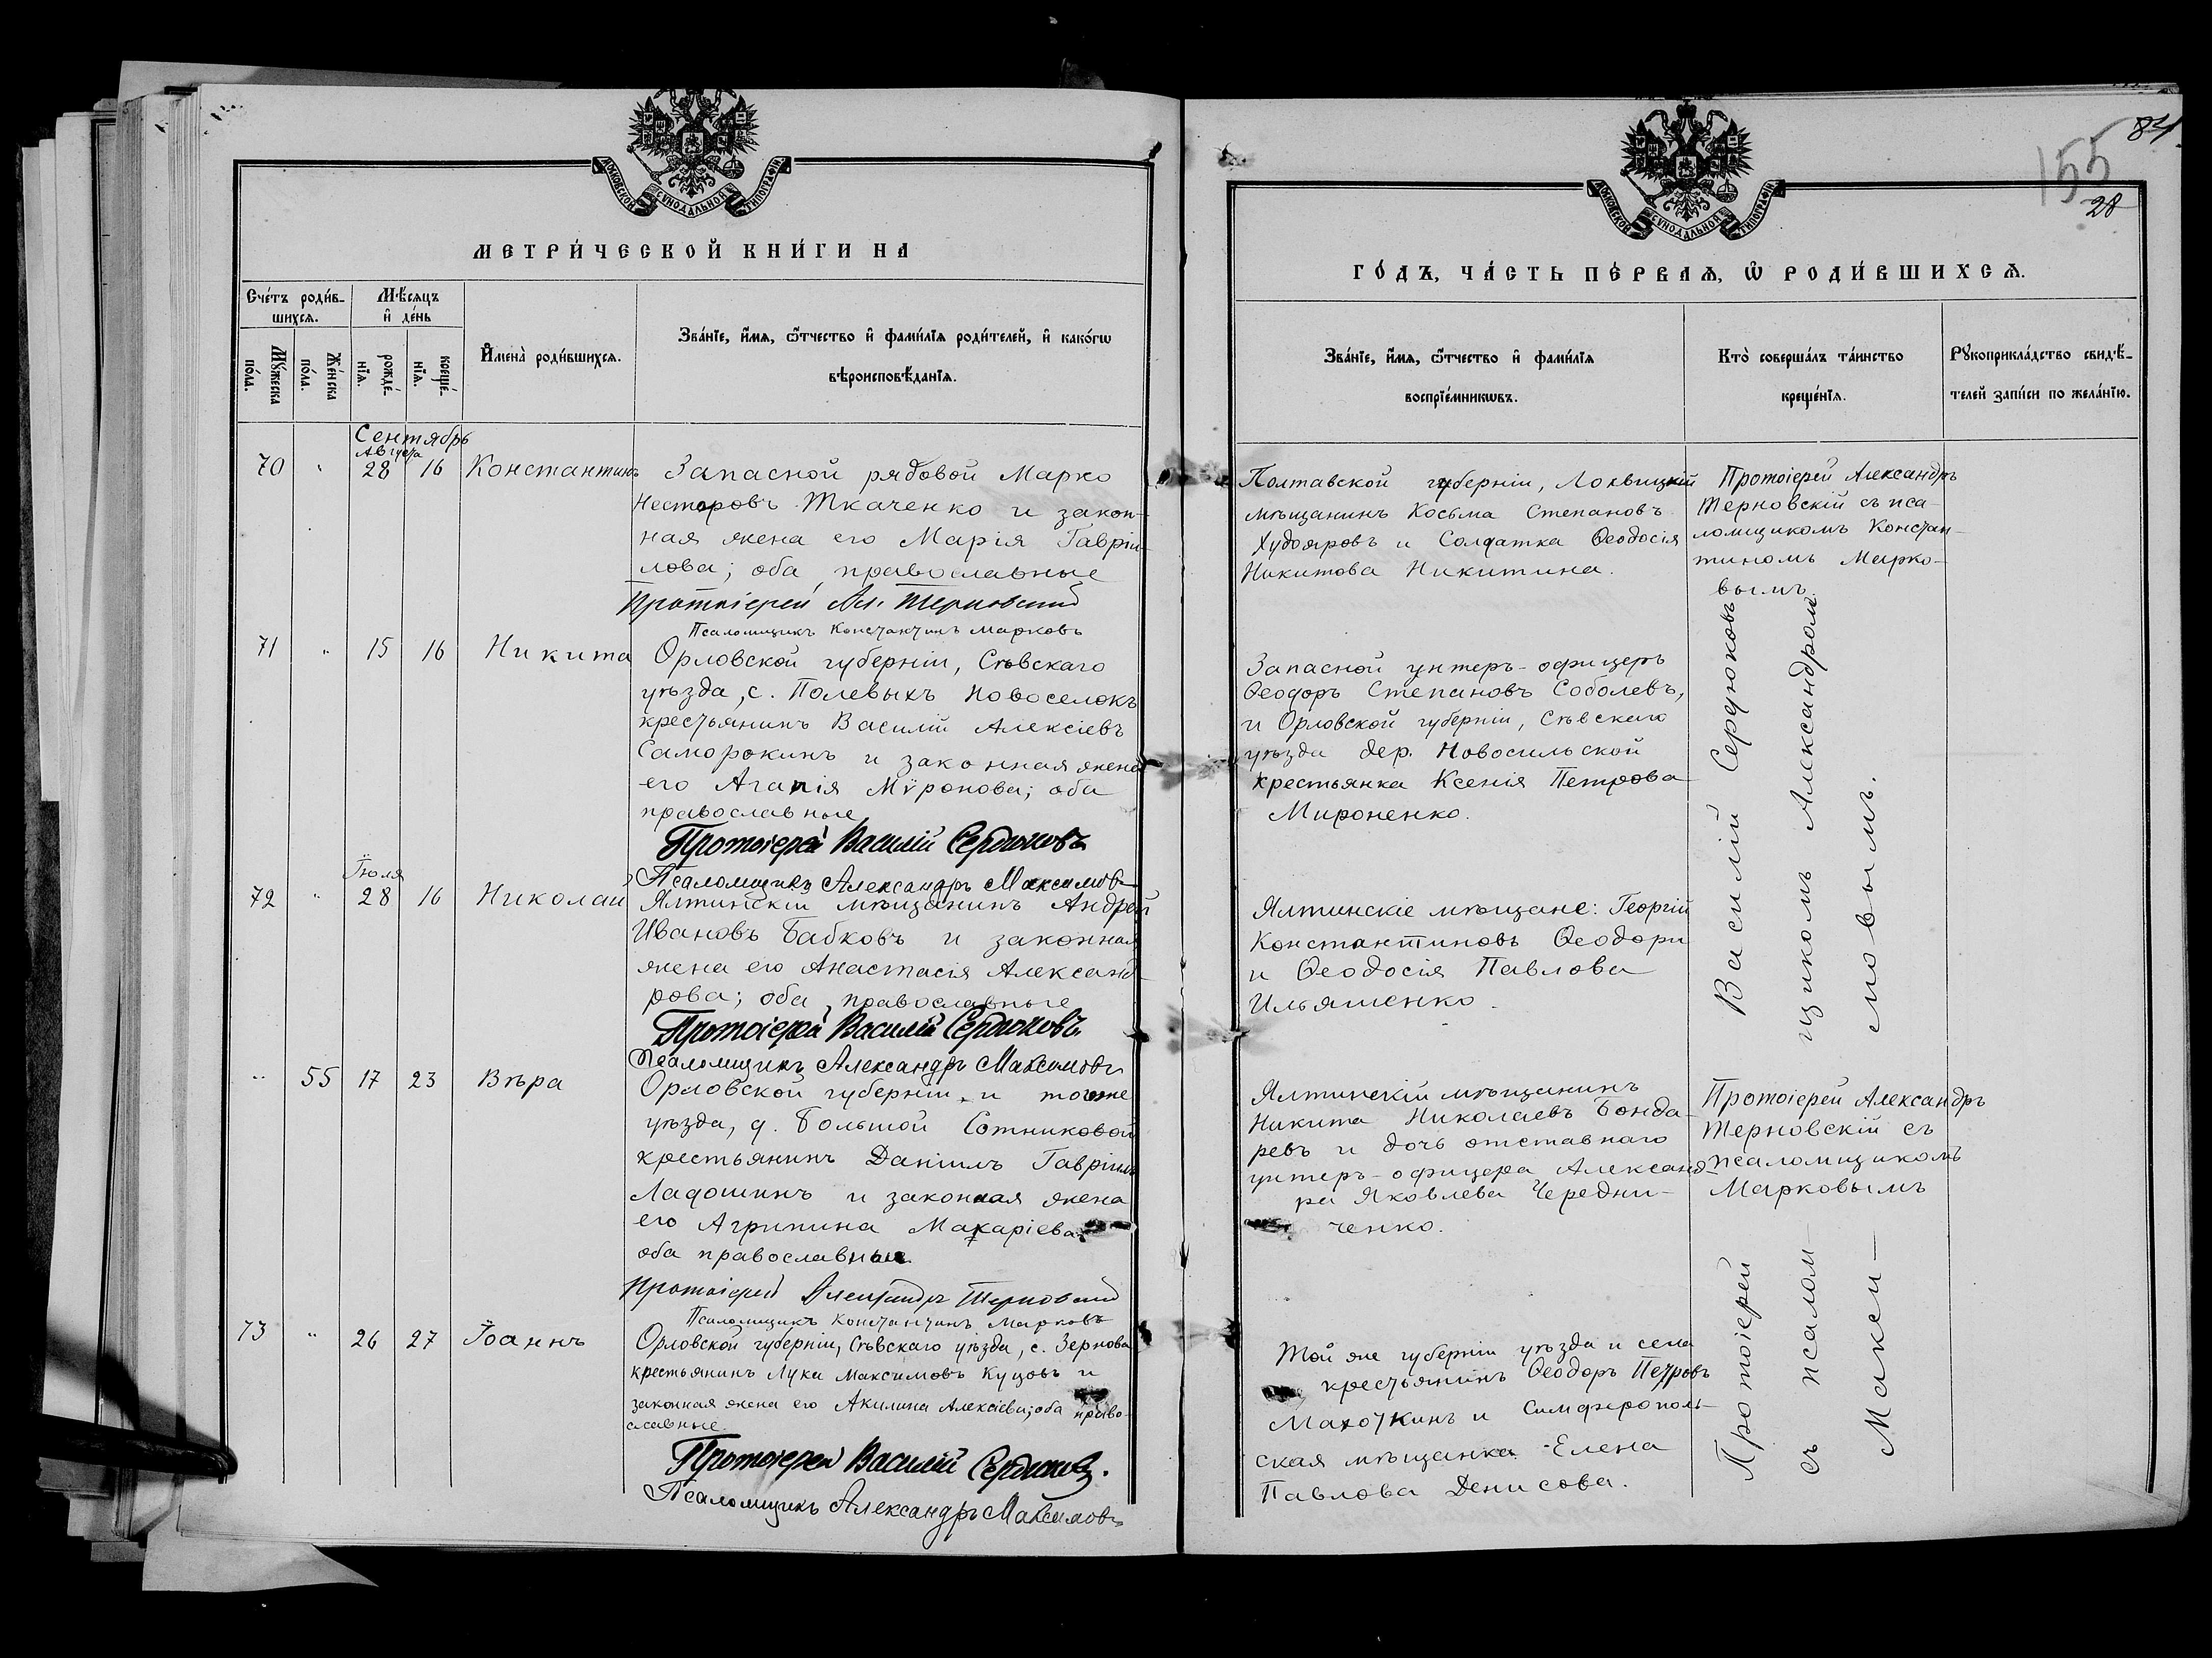 84
155
28
МОСКОВСКОЙ СУНОДАЛЬНОЙ ТИПОГРАФІИ
МЕТРИ́ЧЕСКОЙ КНИ́ГИ НА
Сче́тъ роди́в-
шихсѧ.
Мꙋ́жеска
по́ла.
Же́нска
по́ла.
Мѣ́сѧцъ
и҆ де́нь
рожде́-
нїѧ.
креще́-
нїѧ.
И҆мена̀ роди́вшихсѧ.
Зва́нїе, и҆́мѧ, ѻ҆́тчество и҆ фами́лїѧ роди́телей, и҆ како́гѡ
вѣроисповѣ́данїѧ.
Сентябрь
Августа
70 " 28 16 Константинъ
Запасной рядовой Марко
Несторовъ Ткаченко и закон-
ная жена его Марія Гавріи-
лова; оба православные
Протоіерей Ал. Терновскій
Псаломщикъ Константинъ Марковъ
71 " 15 16 Никита
Орловской губерніи, Сѣвскаго
уѣзда, с. Полевыхъ Новоселокъ
крестьянинъ Василій Алексіевъ
Саморокинъ и законная жена
его Агапія Мѵронова; оба
православные
Протоіерей Василій Сердюковъ
Псаломщикъ Александръ Максимовъ
Іюля
72 " 28 16 Николай
Ялтинскій мѣщанинъ Андрей
Ивановъ Бабковъ и законная
жена его Анастасія Александ-
рова; оба православные
Протоіерей Василій Сердюковъ
Псаломщикъ Александръ Максимовъ
" 55 17 23 Вѣра
Орловской губерніи и тогоже
уѣзда, д. Большой Сотниковой
крестьянинъ Даніилъ Гавріилъ
Ладошинъ и законная жена
его Агрипина Макаріева
оба православные
Протоіерей Александръ Терновскій
Псаломщикъ Константинъ Марковъ
73 " 26 27 Іоаннъ
Орловской губерніи, Сѣвскаго уѣзда, с. Зернова
крестьянинъ Лука Максимовъ Куцовъ и
законная жена его Акилина Алексіева; оба право-
славные
Протоіерей Василій Сердюковъ.
Псаломщикъ Александръ Максимовъ
МОСКОВСКОЙ СУНОДАЛЬНОЙ ТИПОГРАФІИ
ГО́ДЪ, ЧА́СТЬ ПЕ́РВАѦ, Ѽ РОДИ́ВШИХСѦ.
Зва́нїе, и҆́мѧ, ѻ҆́тчество и҆ фами́лїѧ
воспрїе́мникѡвъ.
Кто̀ соверша́лъ та́инство
креще́нїѧ.
Рꙋкоприкла́дство свидѣ́-
телей за́писи по жела́нїю.
Полтавской губерніи, Лохвицкій
мѣщанинъ Косьма Степановъ
Худояровъ и Солдатка Ѳеодосія
Никитова Никитина.
Протоіерей Александръ
Терновскій съ пса-
ломщикомъ Констан-
тиномъ Марко-
вымъ
Запасной унтеръ-офицеръ
Ѳеодоръ Степановъ Соболевъ,
и Орловской губерніи, Сѣвскаго
уѣзда дер. Новосильской
крестьянка Ксенія Петрова
Мироненко.
Ялтинскіе мѣщане: Георгій
Константиновъ Ѳеодори
и Ѳеодосія Павлова
Ильяшенко.
Ялтинскій мѣщанинъ
Никита Николаевъ Бонда-
ревъ и дочь отставнаго
унтеръ-офицера Александ-
ра Яковлева Чередни-
ченко.
Протоіерей Александръ
Терновскій съ
псаломщикомъ
Марковымъ
Той же губерніи уѣзда и села
крестьянинъ Ѳеодоръ Петровъ
Махоткинъ и Симферополь-
ская мѣщанка Елена
Павлова Денисова.
Протоіерей Василій Сердюковъ
съ псалом-щикомъ Александромъ
Макси-мовымъ.